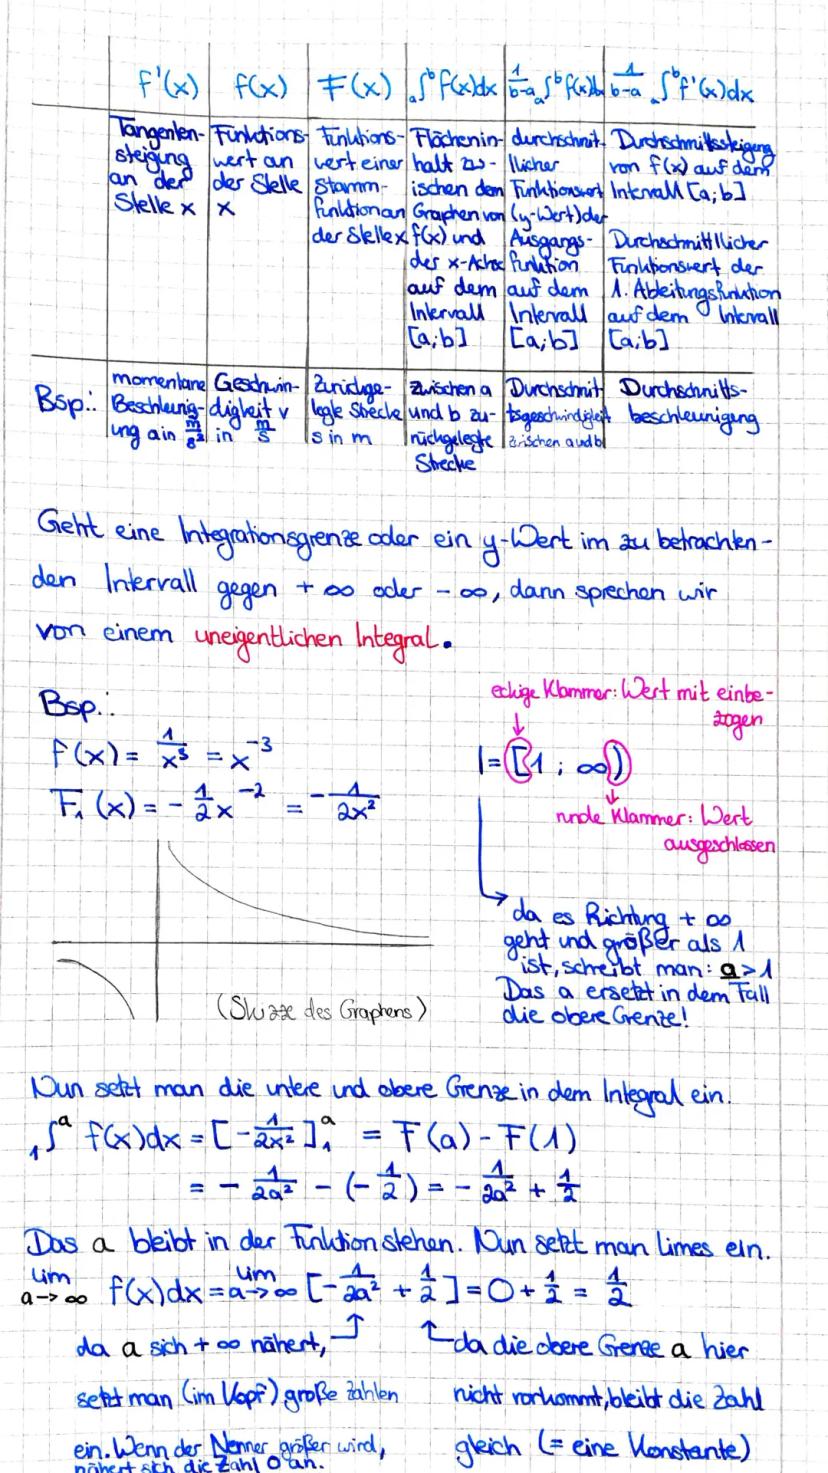 f'(x) f(x) F(x) a∫b f(x)dx 1/b-a a∫b f(x)dx 1/b-a a∫b f'(x)dx
Tangenten-
steigung
an der
Stelle x
Funktions-
wert an
der Stelle
x
Funktions-
wert einer
Stamm-
funktion an
der Stelle x
Flächenin-
halt zw-
ischen dem
Graphen von
f(x) und
der x-Achse
auf dem
Intervall
[a;b]
durchschnit-
tlicher
Funktionswert
(y-Wert) der
Ausgangs-
funktion
auf dem
Intervall
[a;b]
Durchschnittssteigung
von f(x) auf dem
Intervall [a;b]
Durchschnittllicher
Funktionswert der
1. Ableitungsfunktion
auf dem Intervall
[a;b]
Bsp.:
momentane
Beschleunig-
ung a in m/s²
Geschwin-
digkeit v
in m/s
Zurückge-
legte Strecke
s in m
zwischen a
und b zu-
rückgelegte
Strecke
Durchschnit-
tsgeschwindigkeit
zwischen a und b
Durchschnitts-
beschleunigung
Geht eine Integrationsgrenze oder ein y-Wert im zu betrachten-
den Intervall gegen +∞ oder -∞, dann sprechen wir
von einem uneigentlichen Integral.
Bsp.:
f(x) = 1/x³ = x⁻³
F₁(x) = -1/2 x⁻² = -1/2x²
eckige Klammer: Wert mit einbe-
zogen
I = [1 ; ∞)
runde Klammer: Wert
ausgeschlossen
da es Richtung +∞
geht und größer als 1
ist, schreibt man: a>1
Das a ersetzt in dem Fall
die obere Grenze!
(Skizze des Graphens)
Nun setzt man die untere und obere Grenze in dem Integral ein.
1∫a f(x)dx = [-1/2x²]₁ᵃ = F(a) - F(1)
= -1/2a² - (-1/2) = -1/2a² + 1/2
Das a bleibt in der Funktion stehen. Nun setzt man limes ein.
lim a→∞ f(x)dx = lim a→∞ [-1/2a² + 1/2] = 0 + 1/2 = 1/2
da a sich +∞ nähert,
setzt man (im Kopf) große Zahlen
ein. Wenn der Nenner größer wird,
nähert sich die Zahl 0 an.
da die obere Grenze a hier
nicht vorkommt, bleibt die Zahl
gleich (= eine Konstante)